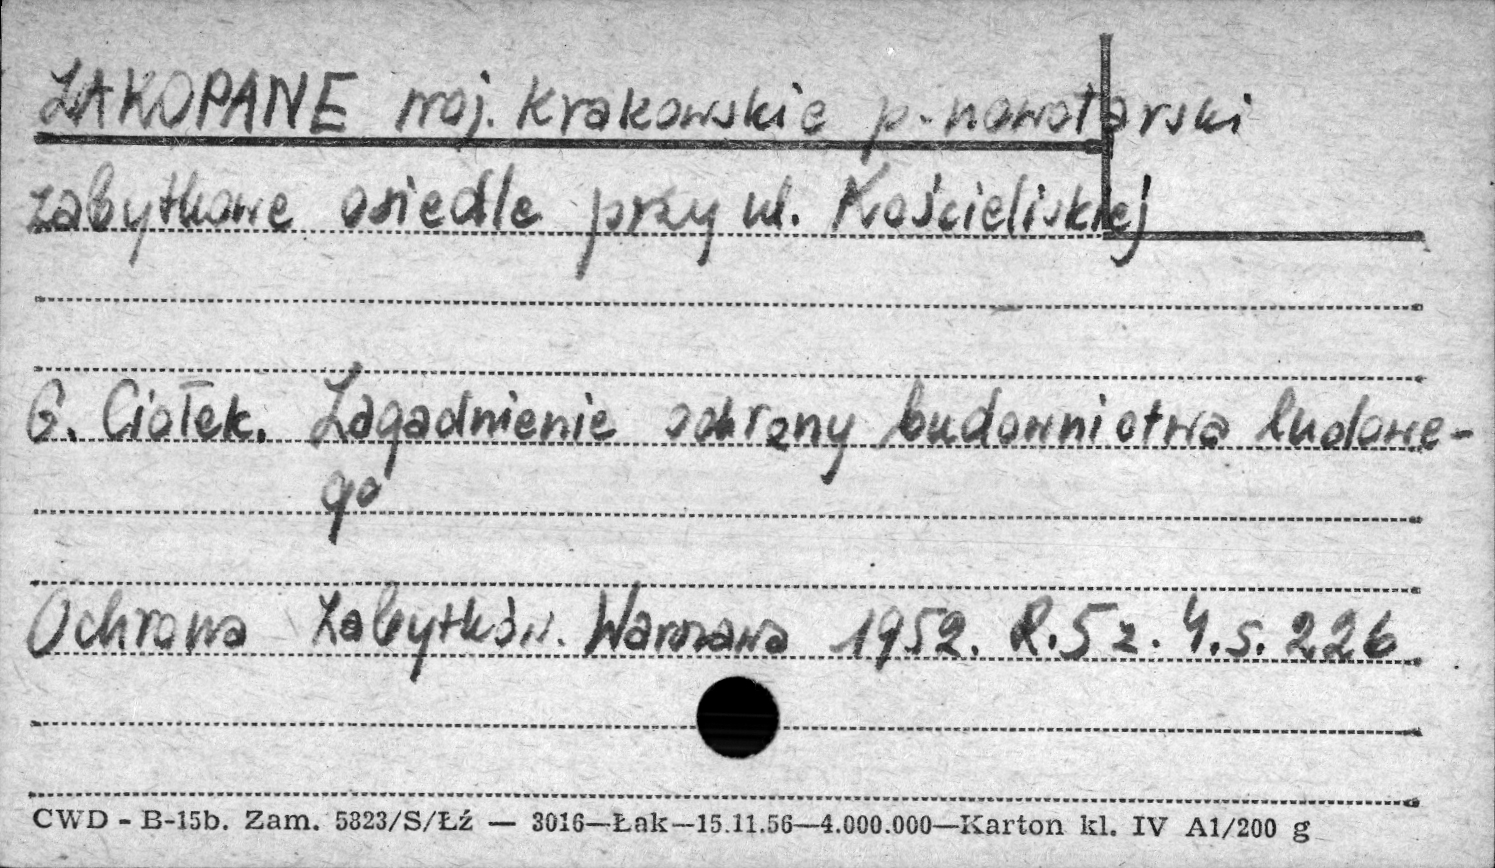 ZAKOPANE woj. krakowskie p. nowotarski
zabytkowe osiedle przy ul. Kościeliskiej
G. Ciołek. Zagadnienie ochrany budownictwa ludowe-
go
Ochrona Zabytków. Warszawa 1952. R.5 z. 4. s. 226
CWD - B-15b. Zam. 5823/S/Łź — 3016—Łak—15.11.56—4.000.000—Karton kl. IV A1/200 g